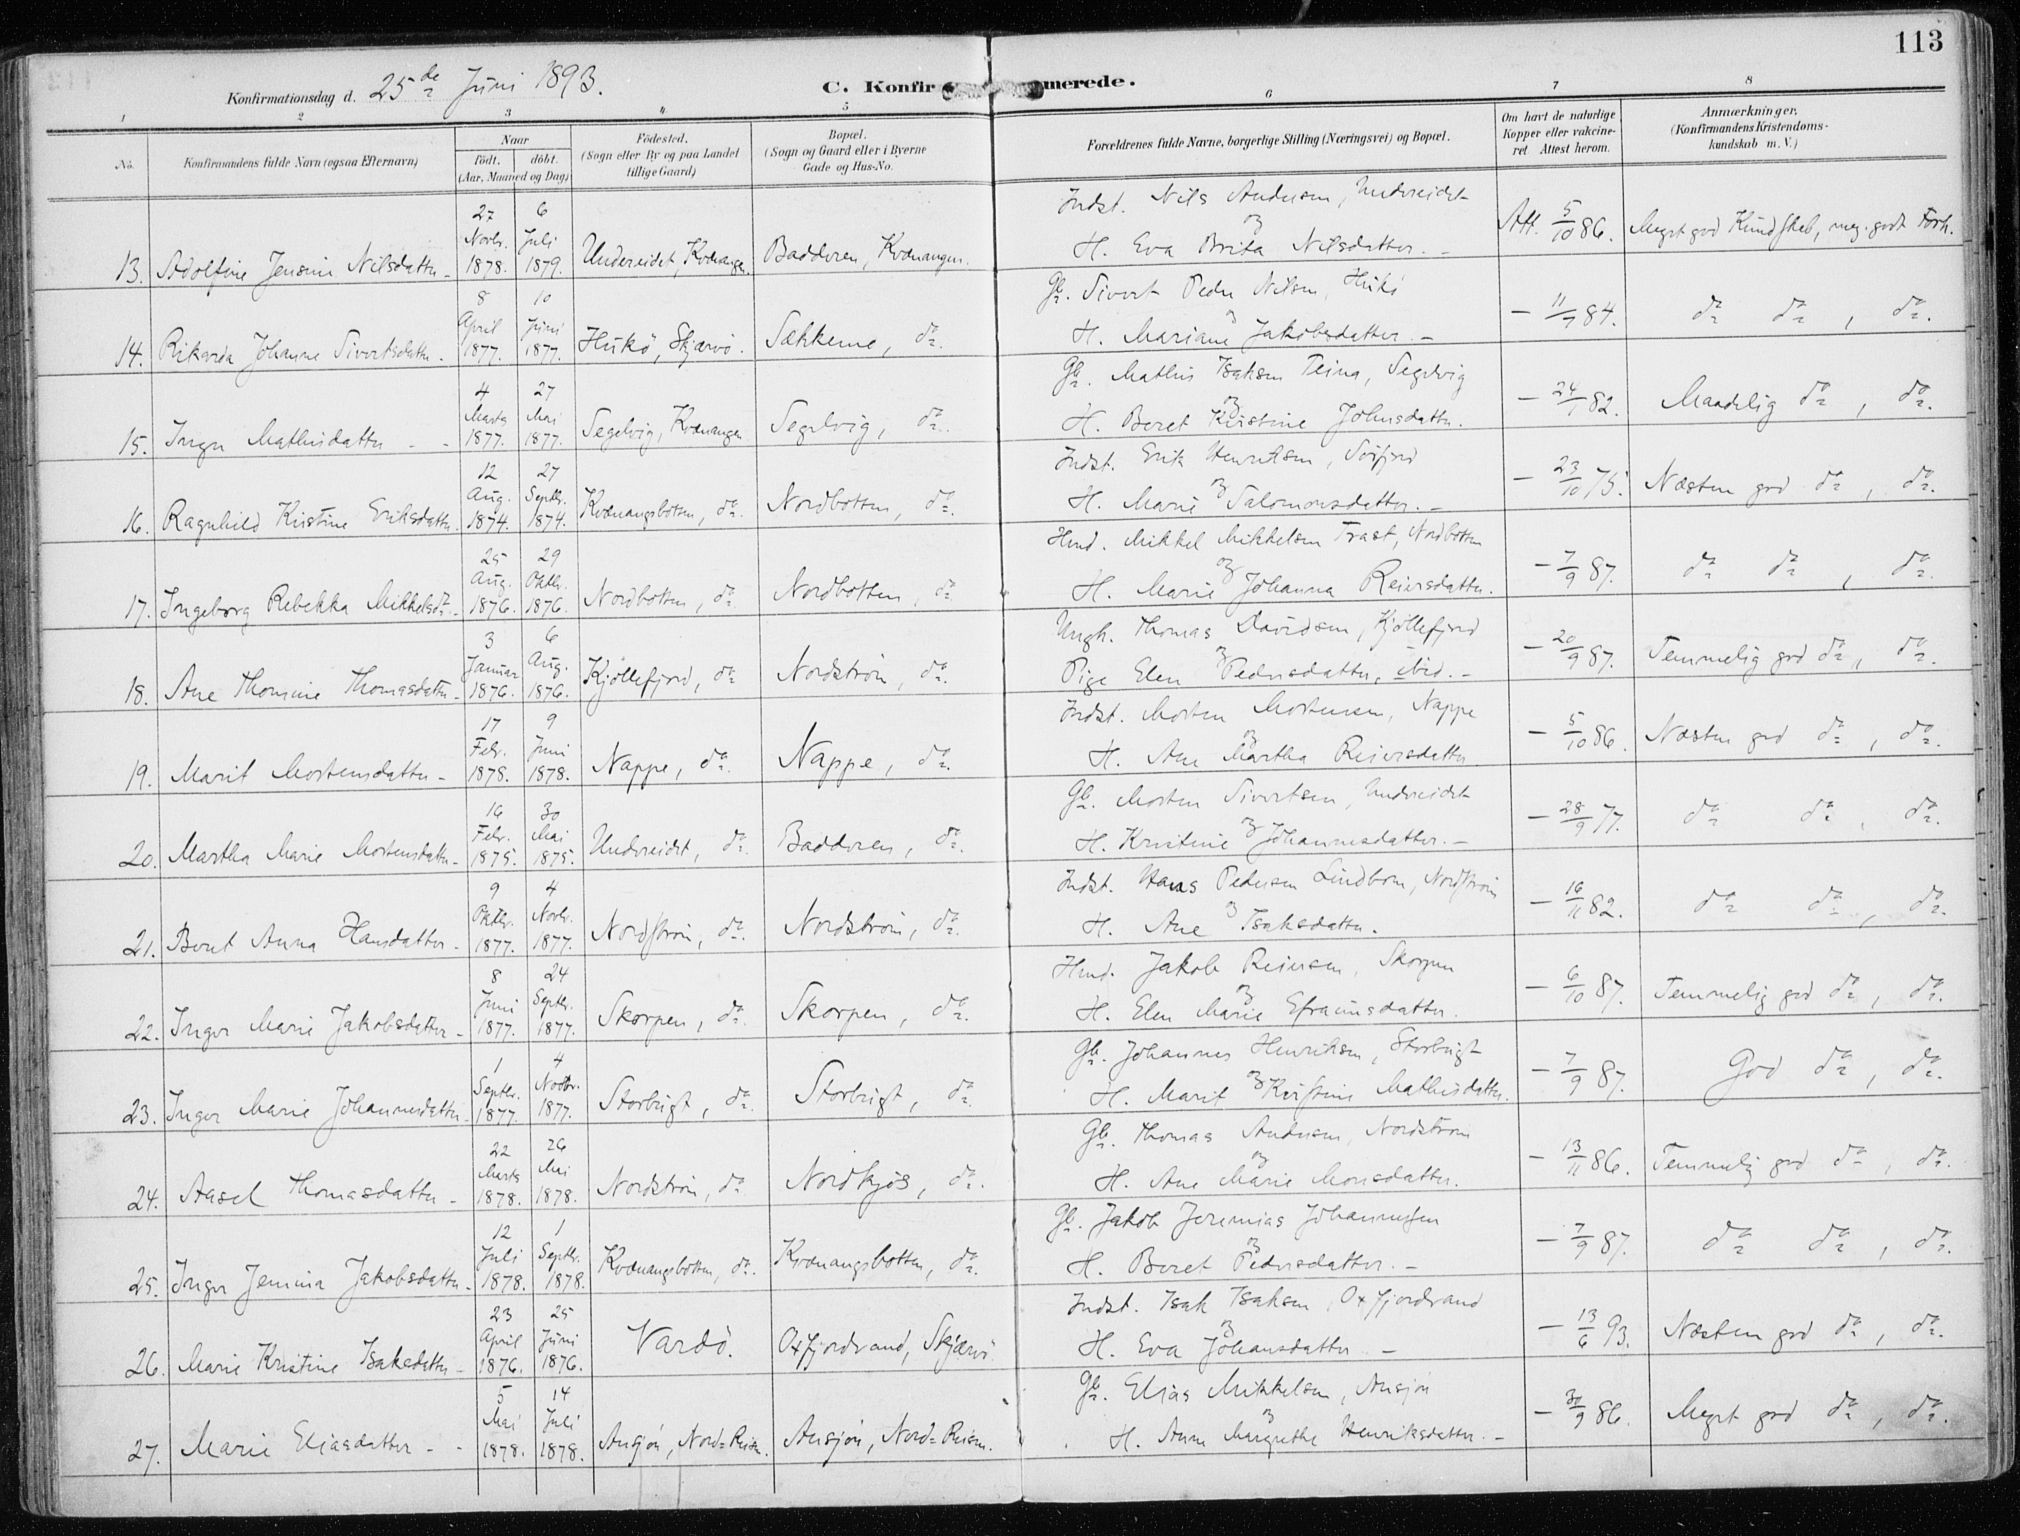 113
Konfirmationsdag d. 25de Juni 1893.
C. Konfirmerede.
1 2 3 4 5 6 7 8
No.
Konfirmandens fulde Navn (ogsaa Efternavn)
Naar
födt. döbt.
(Aar, Maaned og Dag)
Födested.
(Sogn eller By og paa Landet
tillige Gaard)
Bopæl.
(Sogn og Gaard eller i Byerne
Gade og Hus-No.
Forældrenes fulde Navne, borgerlige Stilling (Næringsvei) og Bopæl.
Om havt de naturlige
Kopper eller vakcine-
ret Attest herom.
Anmærkninger.
(Konfirmandens Kristendoms-
kundskab m. V.)
13. Adolfine Jensine Nilsdatter - 27 Novbr. 1878. 6 Juli 1879. Undereidet, Kvænangen. Badderen, Kvænangen.
Indst. Nils Andersen, Undereidet
og
H. Eva Brita Nilsdatter. -
Att. 5/10 86. Meget god Kundskab, meg. godt Forh.
14. Rikarda Johanne Sivertsdatter - 8 April 1877. 10 Juni 1877. Hukö, Skjærvö. Sækkeme, do.
Gb. Sivert Peder Nilsen, Hukö
og
H. Mariane Jakobsdatter. -
- 11/7 84. do do, do.
15. Inger Mathisdatter - - 4 Marts 1877. 27 Mai 1877. Segelvig, Kvænangen Segelvig, do.
Gb. Mathis Isaksen Teina, Segelvig
og
H. Beret Kristine Johnsdatter.
- 24/1 82. Maadelig do, do.
16. Ragnhild Kristine Eriksdatter. 12 Aug. 1874. 27 Septbr. 1874. Kvænangsbotten, do. Nordbotten, do.
Indst. Erik Henriksen, Sörfjord
og
H. Marie Salomonsdatter. -
- 23/10 75. Næsten god do, do.
17. Ingeborg Rebekka Mikkelsdr. - 25 Aug. 1876. 29 Oktbr. 1876. Nordbotten, do Nordbotten, do
Hmd. Mikkel Mikkelsen Trast, Nordbotten
og
H. Marie Johanna Reiersdatter.
- 7/9 87. do do, do.
18. Ane Thomine Thomasdatter - 3 Januar 1876. 6 Aug. 1876. Kjöllefjord, do Nordströn, do.
Ungk. Thomas Davidsen, Kjöllefjord
og
Pige Elen Pedersdatter, ibid. -
- 20/9 87. Temmelig god do, do.
19. Marit Mortensdatter - 17 Febr. 1878. 9 Juni 1878. Nappe, do. Nappe, do.
Indst. Morten Mortensen, Nappe
og
H. Ane Martha Reiersdatter.
- 5/10 86. Næsten god do, do.
20. Martha Marie Mortensdatter - 16 Febr. 1875. 30 Mai 1875. Undereidet, do. Badderen, do.
Gb. Morten Sivertsen, Undereidet
og
H. Kristine Johannesdatter. -
- 28/9 77. do do, do.
21. Beret Anna Hansdatter - 9 Oktbr. 1877. 4 Novbr. 1877. Nordströn, do. Nordströn, do.
Indst. Hans Pedersen Lindbom, Nordströn
og
H. Ane Isaksdatter.
- 16/11 82. do do, do.
22. Inger Marie Jakobsdatter - 8 Juni 1877. 24 Septbr. 1877. Skorpen, do. Skorpen, do.
Hmd. Jakob Reiersen, Skorpen
og
H. Elen Marie Efraimsdatter.
- 6/10 87. Temmelig god do, do.
23. Inger Marie Johannesdatter - 1 Septbr. 1877. 4 Novbr. 1877. Storbugt, do. Storbugt, do.
Gb. Johannes Henriksen, Storbugt
og
H. Marit Kristine Mathisdatter.
- 7/9 87. God do, do.
24. Aasel Thomasdatter - 22 Marts 1878. 26 Mai 1878. Nordströn, do Nordkjös, do.
Gb. Thomas Andersen, Nordströn
og
H. Ane Marie Monsdatter.
- 13/11 86. Temmelig god do, do.
25. Inger Jemina Jakobsdatter - 12 Juli 1878. 1 Septbr. 1878. Kvænangsbotten, do. Kvænangsbotten, do.
Gb. Jakob Jeremias Johannessen
og
H. Beret Pedersdatter. -
- 7/9 87. do do, do.
26. Marie Kristine Isaksdatter - 23 April 1876. 25 Juni 1876. Vardö. Oxfjordvand, Skjærvö.
Indst. Isak Isaksen, Oxfjordvand
og
H. Eva Johansdatter. -
- 13/6 93. Næsten god do, do.
27. Marie Eliasdatter - - 5 Mai 1878. 14 Juli 1878. Ansjön, Nord=Reisen. Ansjön, Nord=Reisen.
Gb. Elias Mikkelsen, Ansjön
og
H. Anne Margrethe Henriksdatter. -
- 30/9 86. Meget god do, do.